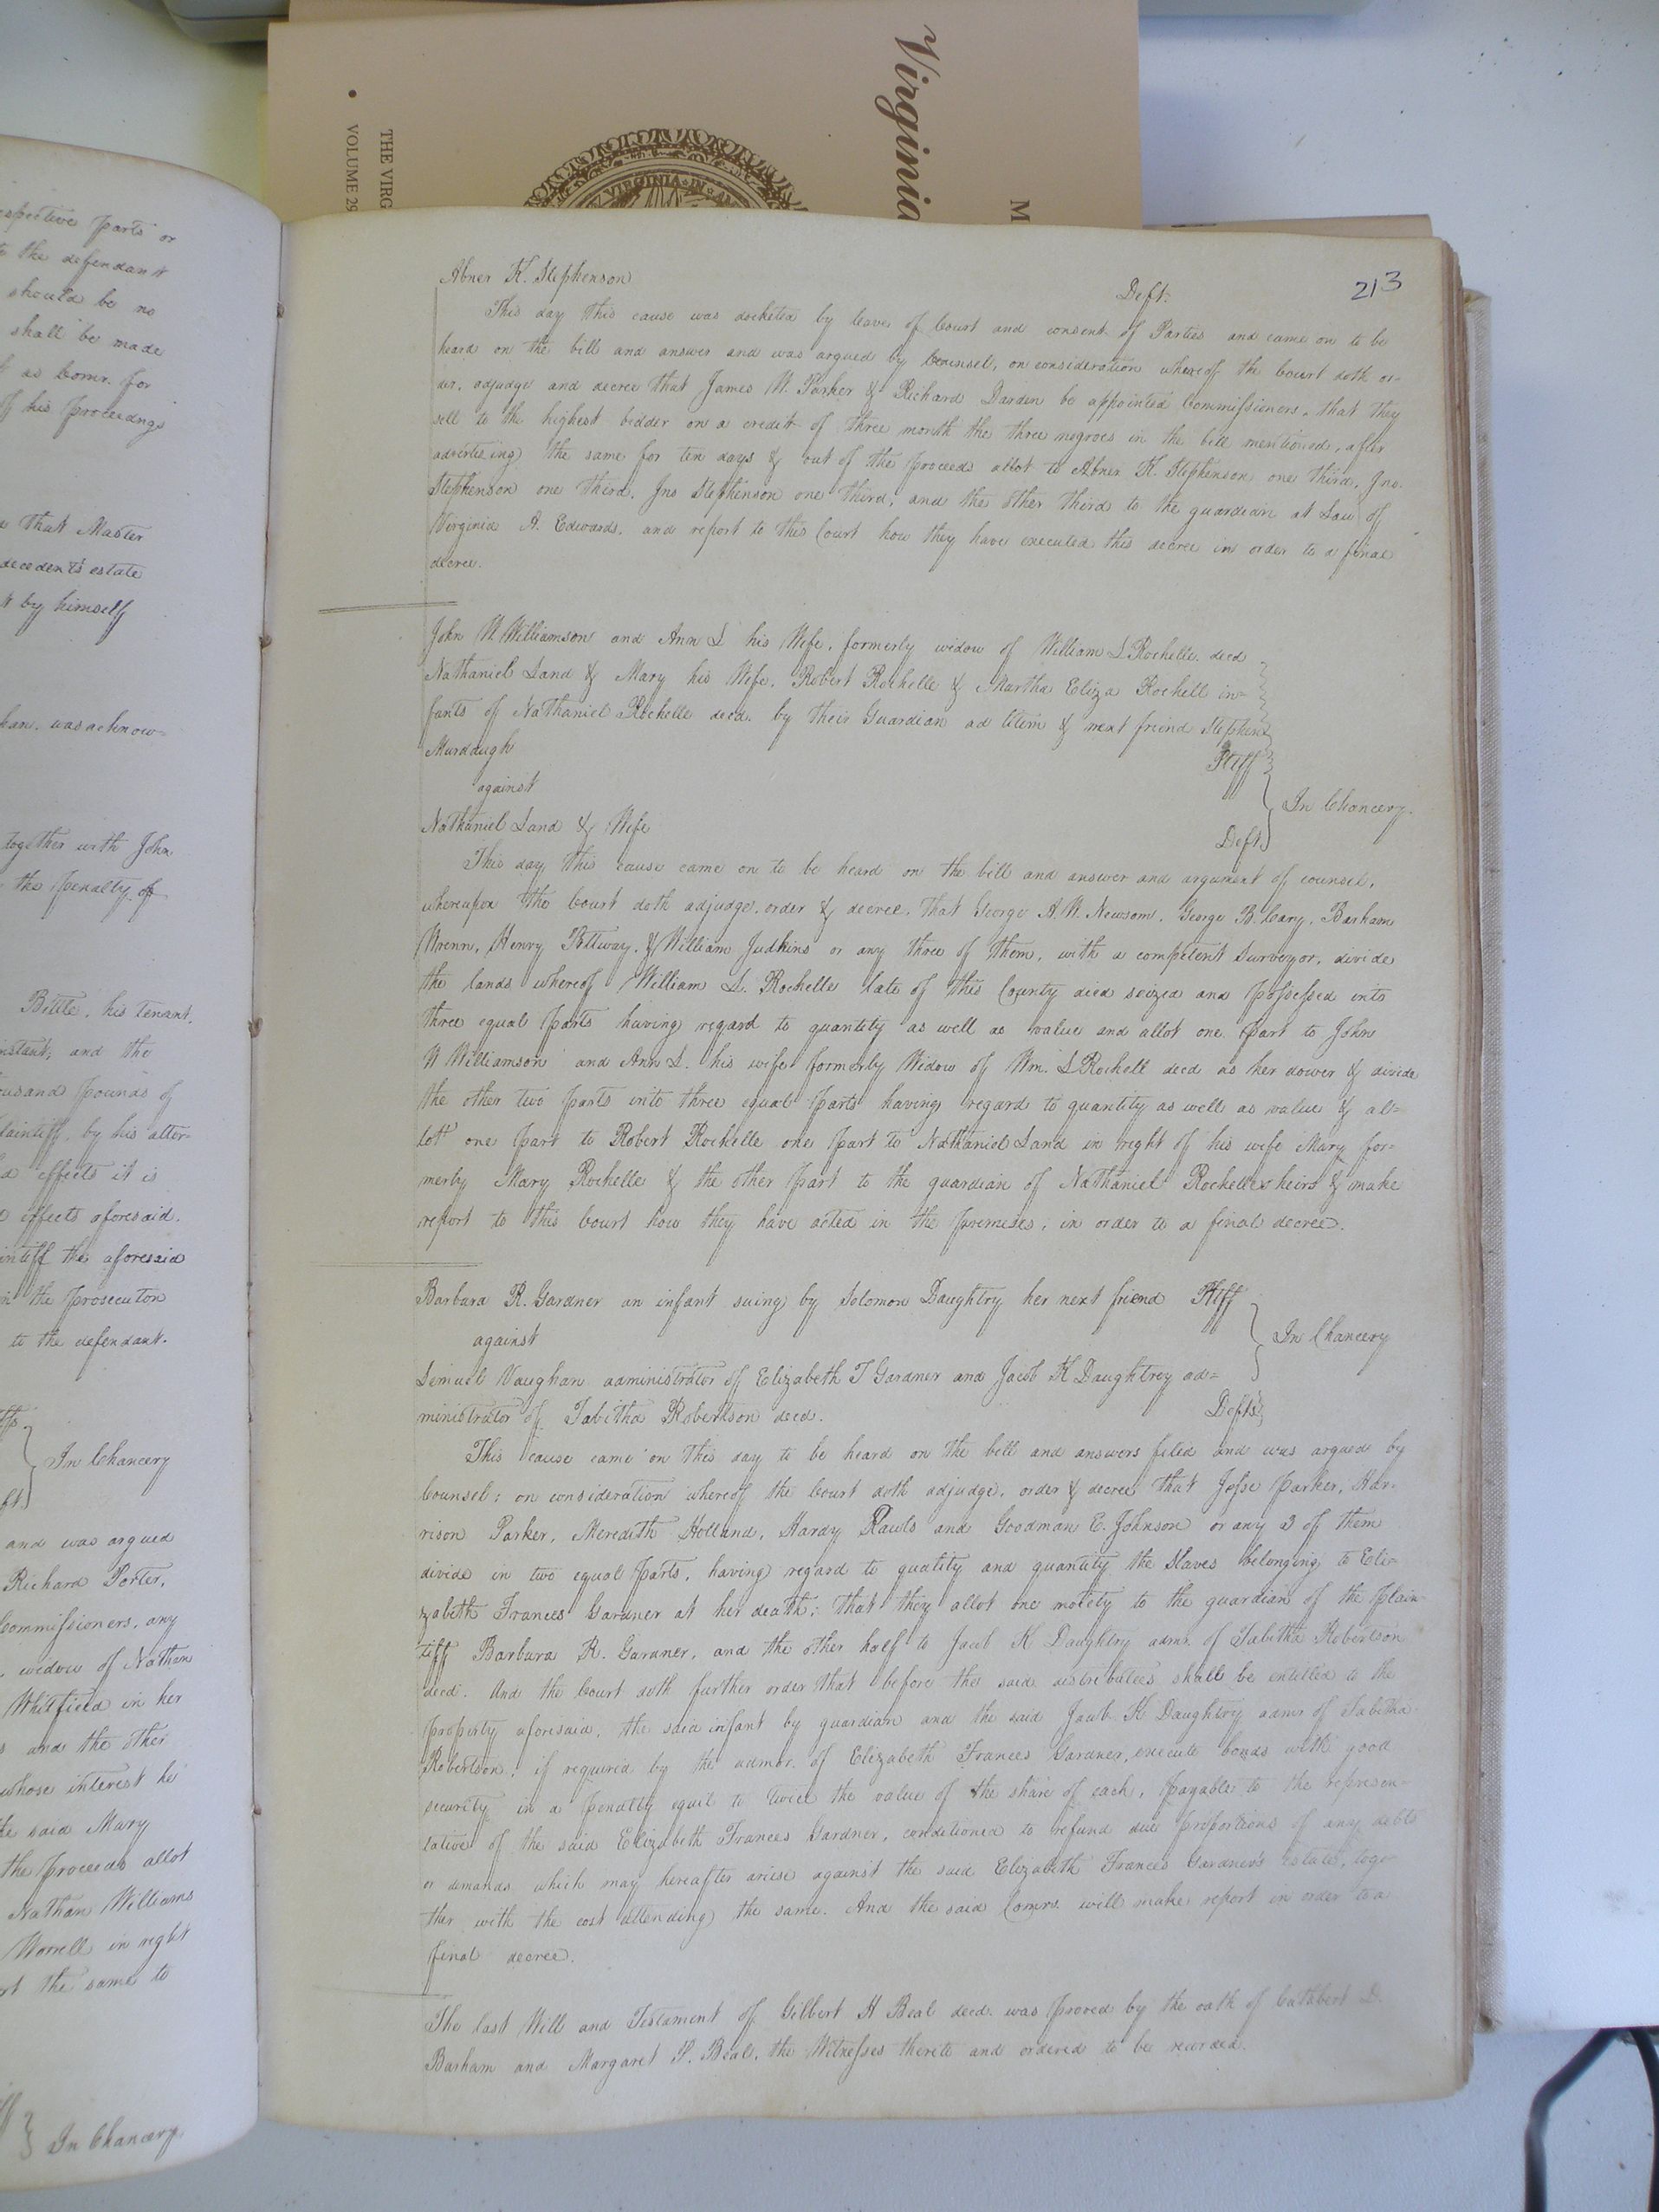 Virginia
M
THE VIRG
VOLUME 29
VIRGINIA IN
spective parts or
to the defendant
should be no
shall be made
as Comr. for
of his proceedings
that Master
decedent's estate
by himself
was acknow=
together with John
the penalty of
Bittle, his tenant,
instant, and the
ousand pounds of
laintiff, by his attor-
effects it is
effects aforesaid.
intiff the aforesaid
the prosecuton
to the defendant.
In Chancery
and was argued
Richard Porter,
Commissioners, any
, widow of Nathan
Whitfield in her
and the other
whose interest he
said Mary
the proceeds allot
Nathan Williams
Worrell in right
the same to
In Chancery
213
Abner K. Stephenson Deft.
This day this cause was docketed by leave of Court and consent of Parties and came on to be
heard on the bill and answer and was argued by Counsel, on consideration whereof the Court doth or-
der, adjudge and decree that James W. Parker & Richard Darden be appointed Commissioners, that they
sell to the highest bidder on a credit of three month the three negroes in the bill mentioned, after
advertising the same for ten days & out of the proceeds allot to Abner K. Stephenson one third, Jno.
Stephenson one third, Jno Stephenson one third, and the other third to the guardian at Law of
Virginia A. Edwards, and report to this Court how they have executed this decree in order to a final
decree.
John W. Williamson and Ann L his Wife, formerly widow of William L Rochelle. decd
Nathaniel Land & Mary his Wife, Robert Rochelle & Martha Eliza Rochell in=
fants of Nathaniel Rochelle decd. by their Guardian ad litem & next friend Stephen
Murdaugh Pltff
against
In Chancery.
Nathaniel Land & Wife Deft.
This day this cause came on to be heard on the bill and answer and argument of counsel,
whereupon the Court doth adjudge, order & decree, that George A. W. Newsom, George B. Cary, Barham
Wrenn, Henry Pettway, & William Judkins or any three of them, with a competent Surveyor, divide
the lands whereof William L. Rochelle late of this County died seized and possessed into
three equal parts having regard to quantity as well as value and allot one part to John
W Williamson and Ann L. his wife formerly Widow of Wm. L Rochell decd as her dower & divide
the other two parts into three equal parts having regard to quantity as well as value & al=
lott one part to Robert Rochelle one part to Nathaniel Land in right of his wife Mary for-
merly Mary Rochelle & the other part to the guardian of Nathaniel Rochelles heirs & make
report to this Court how they have acted in the premises, in order to a final decree.
Barbara R. Gardner an infant suing by Solomon Daughtry her next friend Pltff
against In Chancery
Lemuel Vaughan administrator of Elizabeth T Gardner and Jacob K Daughtrey ad=
ministrator of Tabitha Robertson decd. Defts
This cause came on this day to be heard on the bill and answers filed and was argued by
Counsel; on consideration whereof the Court doth adjudge, order & decree that Jesse Parker, Har-
rison Parker, Meredith Holland, Hardy Rawls and Goodman E. Johnson or any 3 of them
divide in two equal parts, having regard to quality and quantity the Slaves belonging to Eli=
zabeth Frances Gardner at her death; that they allot one moiety to the guardian of the Plain-
tiff Barbara R. Gardner, and the other half to Jacob K Daughtry admr. of Tabitha Robertson
decd. And the Court doth further order that before the said distributees shall be entitled to the
property aforesaid, the said infant by guardian and the said Jacob K Daughtry admr of Tabitha
Robertson, if required by the admor. of Elizabeth Frances Gardner, execute bonds with good
security in a penalty equil to twice the value of the share of each, payable to the represen-
tative of the said Elizabeth Frances Gardner, conditioned to refund due proportions of any debts
or demands which may hereafter arise against the said Elizabeth Frances Gardner's estate, toge-
ther with the cost attending the same. And the said Comrs. will make report in order to a
final decree.
The last Will and Testament of Gilbert H Beal decd. was proved by the oath of Cuthbert D.
Barham and Margaret S. Beal, the Witnesses thereto and ordered to be recorded.